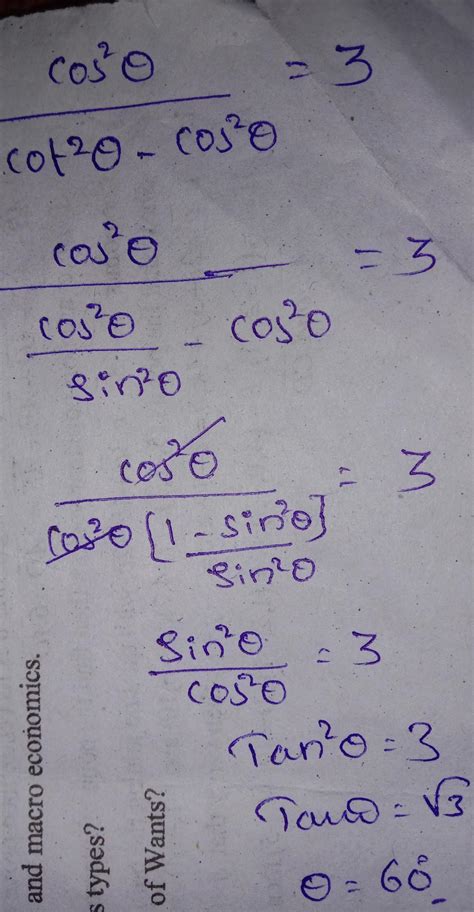 cos²θ = 3
cot²θ - cos²θ
cos²θ = 3
cos²θ - cos²θ
sin²θ
cos²θ = 3
cos²θ [1 - sin²θ]
sin²θ
sin²θ = 3
cos²θ
Tan²θ = 3
Tanθ = √3
θ = 60°
and macro economics.
s types?
of Wants?